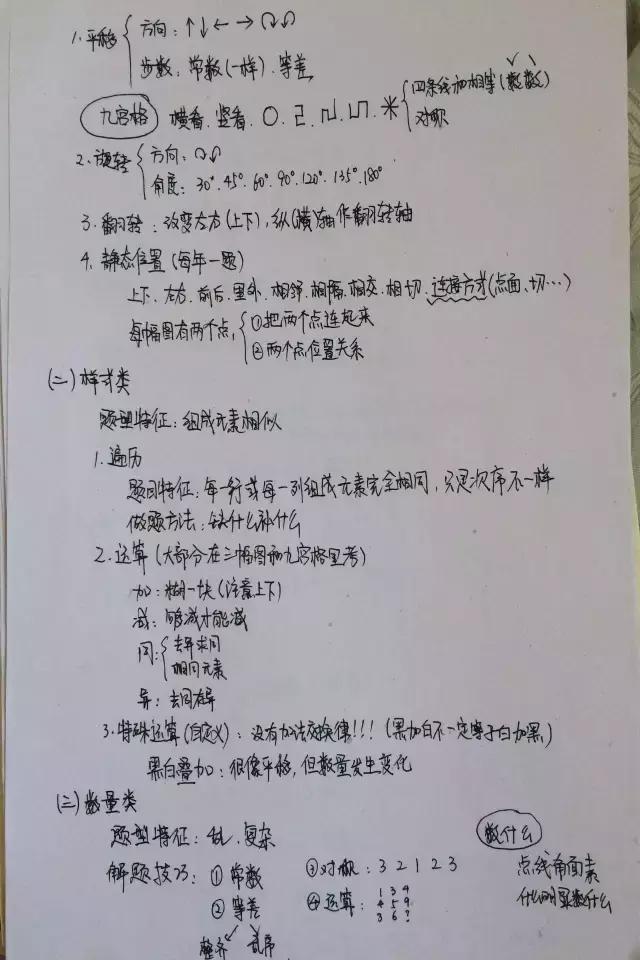 1.平移 方向:↑↓←→
步数:常数(一样).等差
九宫格 横看.竖看. 四条线加相等(数数)
对称
2.旋转 方向:
角度:30°.45°.60°.90°.120°.135°.180°
3.翻转:改变左右(上下),纵(横)轴作翻转轴
4.静态位置(每年一题)
上下.左右.前后.里外.相邻.相隔.相交.相切.连接方式(点面、切…)
每幅图有两个点, ①把两个点连起来
②两个点位置关系
(二)样式类
题型特征:组成元素相似
1.遍历
题目特征:每一行或每一列组成元素完全相同,只是次序不一样
做题方法:缺什么补什么
2.运算(大部分在三幅图和九宫格里考)
加:糊一块(注意上下)
减:够减才能减
同: 去异求同
相同元素
异:去同存异
3.特殊运算(自定义):没有加法交换律!!!(黑加白不一定等于白加黑)
黑白叠加:很像平移,但数量发生变化
(三)数量类
题型特征:乱.复杂
数什么
解题技巧:①常数 ③对称:3 2 1 2 3 点线角面素
②等差 ④运算:1 3 4 什么明显数什么
4 5 9
3 6 ?
整齐 乱序